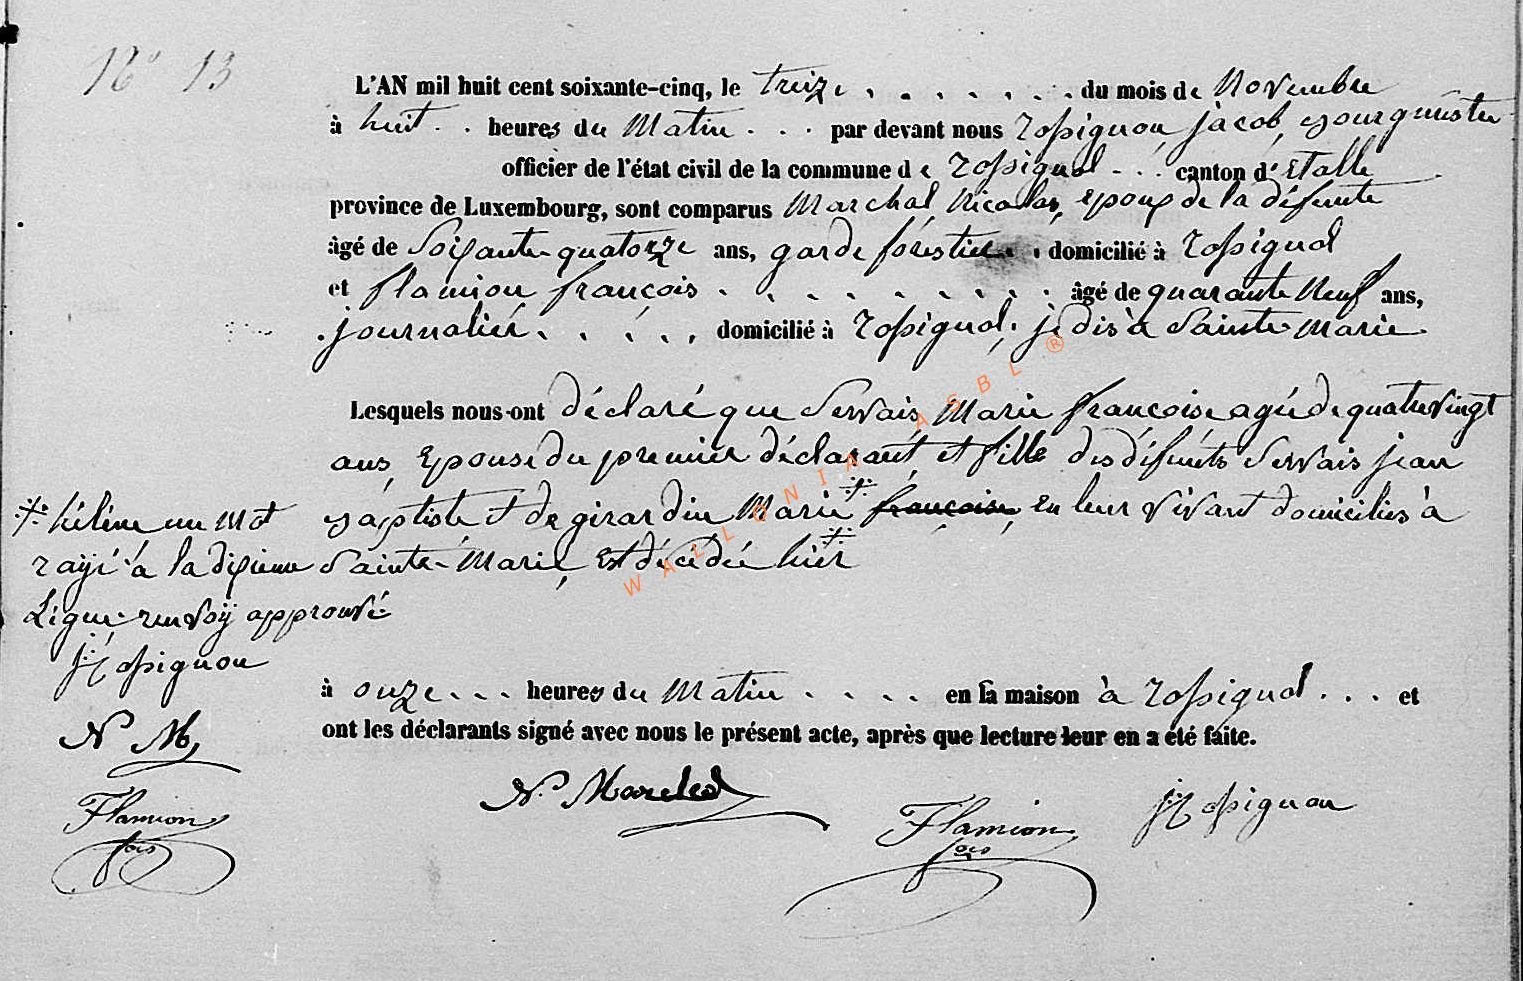 N° 13
L'AN mil huit cent soixante-cinq, le treize . . . . . . . du mois de Novembre
à huit . . heures du Matin . . . par devant nous Rossignon jacob, Bourgmestre
officier de l'état civil de la commune de Rossignol . . . canton d'Etalle
province de Luxembourg, sont comparus Marchal, Nicolas, epoux de la défunte
âgé de Soixante-quatorze ans, garde forestier . . domicilié à Rossignol
et flamion françois . . . . . . . . . âgé de quarante Neuf ans,
journalier . . . . . domicilié à Rossignol, je dis à Sainte-Marie.
Lesquels nous ont déclaré que Servais, Marie françoise agée de quatrevingt
ans, Epouse du premier déclarant, et fille des défunts Servais jean
Baptiste et de girardin Marie françoise, en leur vivant domiciliés à
Sainte-Marie, Est décédée hier
hélène un Mot
rayé à la dixieme
Ligne renvoÿ approuvé
jRossignon
N M
Flamion
fois
à onze . . . heures du Matin . . . . en sa maison à Rossignol . . . et
ont les déclarants signé avec nous le présent acte, après que lecture leur en a été faite.
N. Marchal
Flamion
fois
jRossignon
WALLONIA ASBL ®